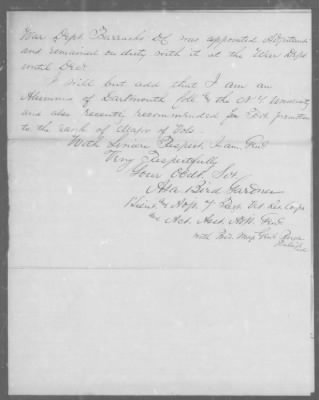 War Dept Barracks DC was appointed Adjutant
and remained on duty with it at the War Dept
until Decr
I will but add that I am an
Alumnus of Dartmouth Coll & the N.Y. University
and also recently recommended for promotion
to the rank of Major of Vols.
With Sincere Respect, I am, Genl
Very Respectfully
Your Obdt Svt
Asa Bird Gardner
Lieut & Adjt 7 Regt Vet Res Corps
Act. Asst. Adjt. Genl
with Bvt. Maj. Genl